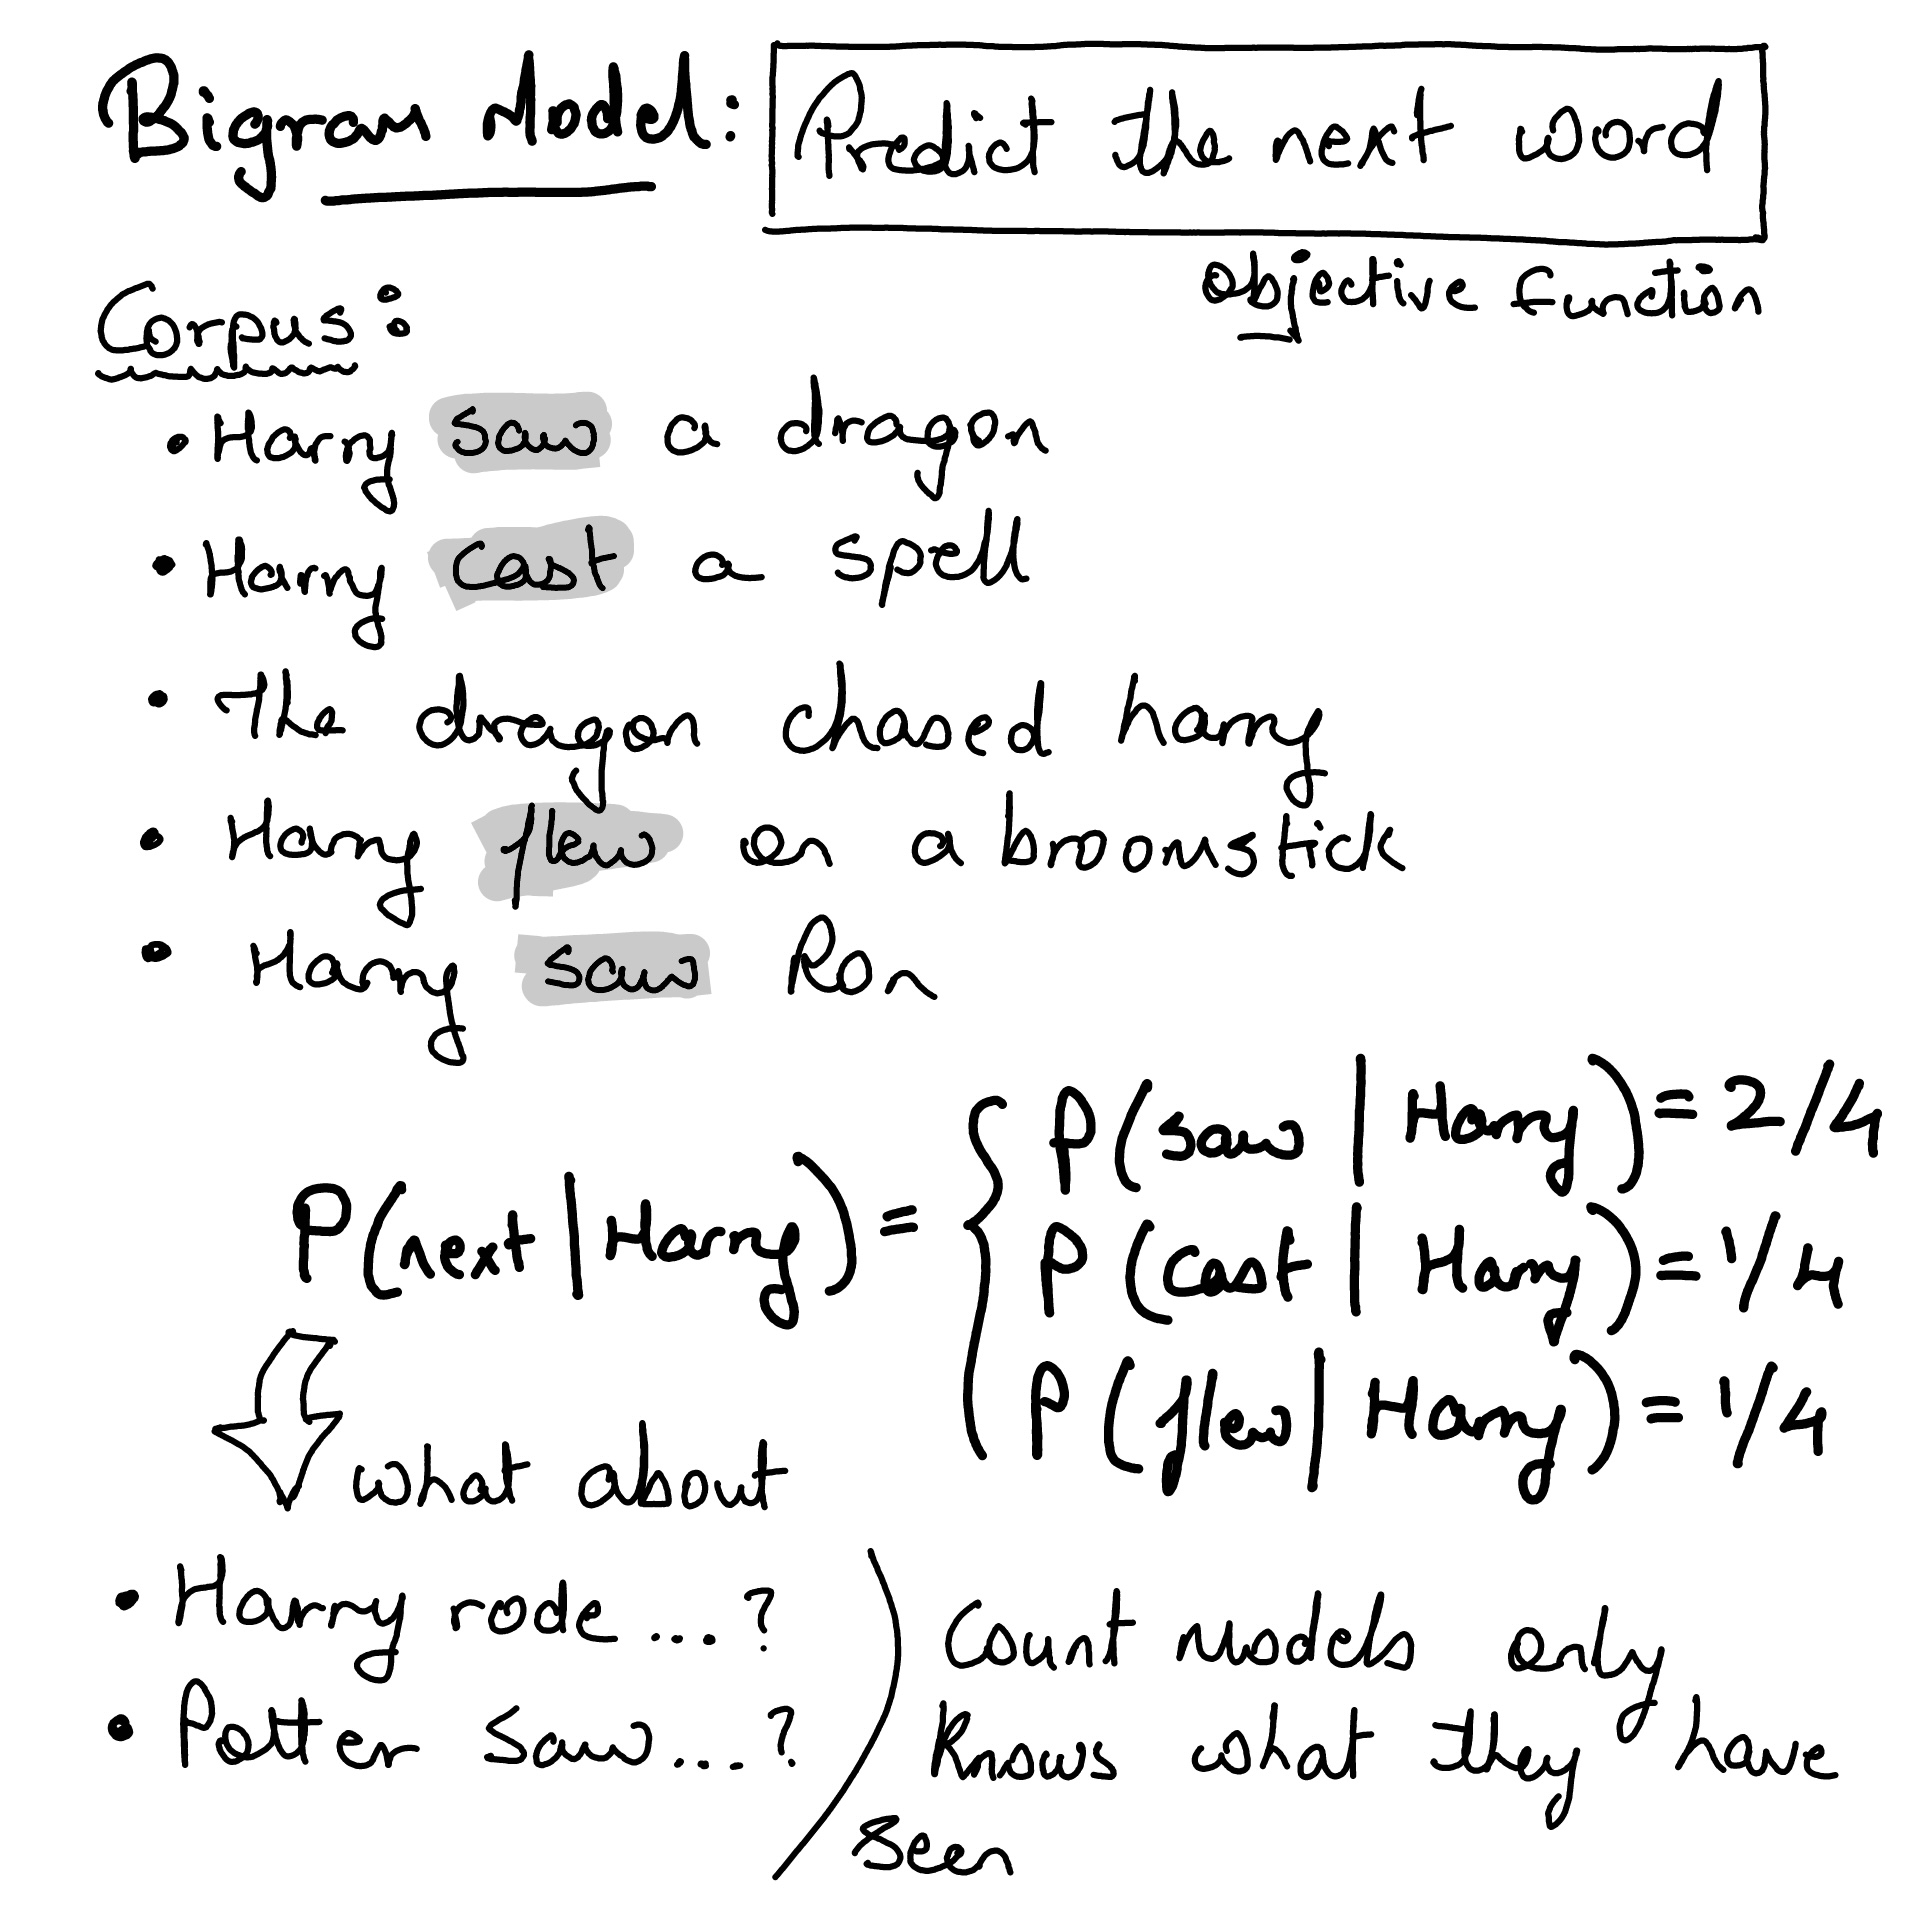 Bigram Model: Predict the next word
Objective function
Corpus:
• Harry saw a dragon
• Harry cast a spell
• The dragon chased harry
• Harry flew on a broomstick
• Harry saw Ron
P(saw | Harry) = 2/4
P(next | Harry) = { P(cast | Harry) = 1/4
P(flew | Harry) = 1/4
what about
• Harry rode .... ?
• Potter saw .... ?
Count models only
knows what they have
seen